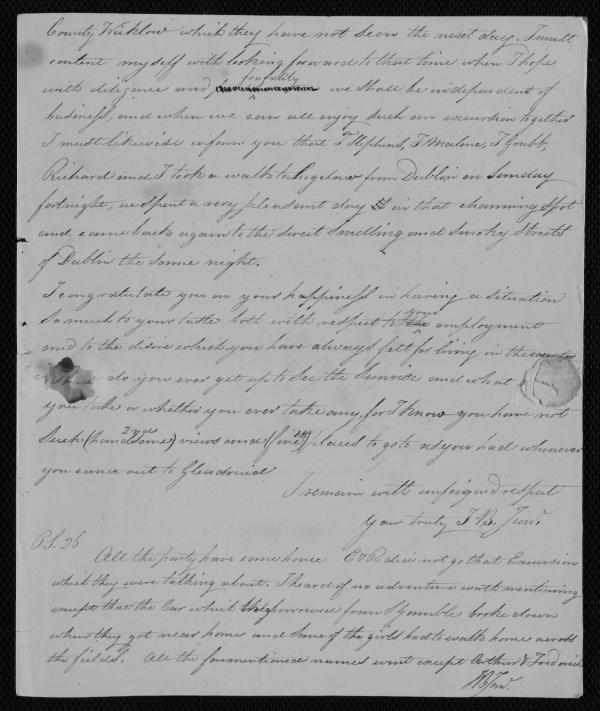 County Wicklow which they have not seen the next day. I must
content myself with looking forward to that time when I hope
with diligence and frugality we shall be independent of
business, and when we can all enjoy such an excursion together
I must likewise inform you that T Stephens, J Malone, J Grubb,
Richard and I took a walk to Lugelaw from Dublin on Sunday
fortnight, we spent a very pleasant day in that charming spot
and came back again to the sweet smelling and smoky Streets
of Dublin the same night.
I congratulate you on your happiness in having a situation
so much to your taste both with respect to the your employment
and to the desire which you have always felt for living in the
do you ever get up to see the Sunrise and what
you take or whether you ever take any, for I know you have not
such (handsome) 2nd views and (fine) 1st places to go to as you had whenever
you came out to Glendruid
I remain with unfeigned respect
Your truly J B. Junr.
P.S. 26
All the party have come home E & R did not go that Excursion
which they were talking about. I heard of no adventure worth mentioning
except that the Car which they borrowed from S Gamble broke down
when they got near home and some of the girls had to walk home across
the fields. All the forementioned names went except Arthur & Frederick
JB Junr.